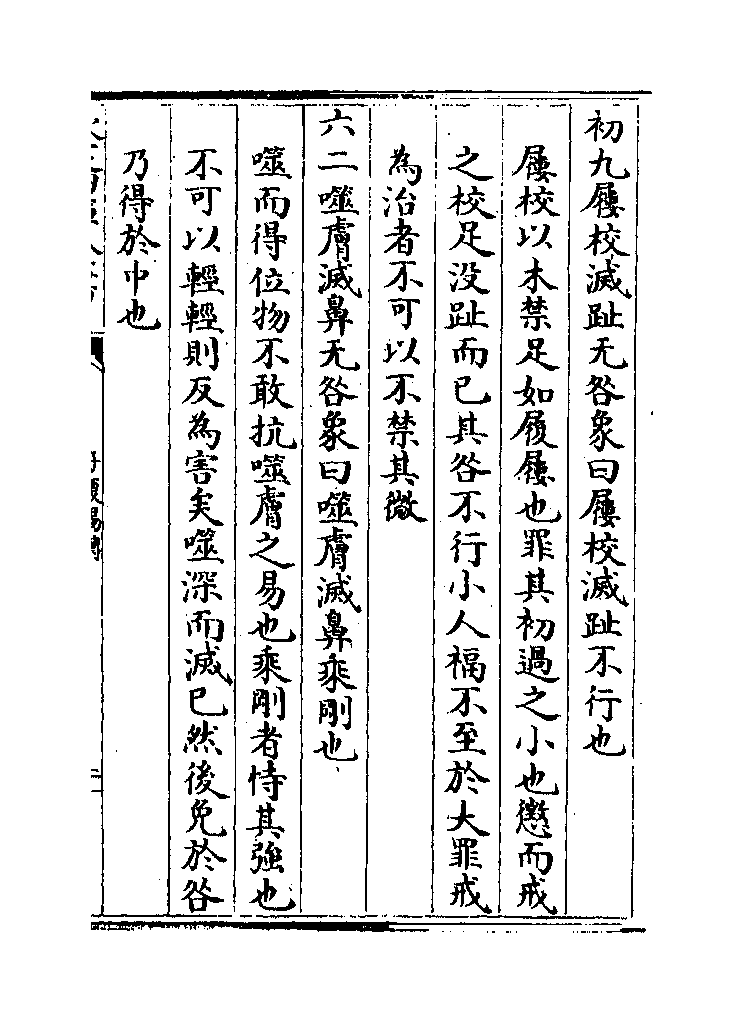 初九屨校滅趾无咎象曰屨校滅趾不行也
屨校以木禁足如履屨也罪其初過之小也懲而戒
之校足没趾而已其咎不行小人福不至於大罪戒
為治者不可以不禁其微
六二噬膚滅鼻无咎象曰噬膚滅鼻乘剛也
噬而得位物不敢抗噬膚之易也乘剛者恃其強也
不可以輕輕則反為害矣噬深而滅已然後免於咎
乃得於中也
易傳